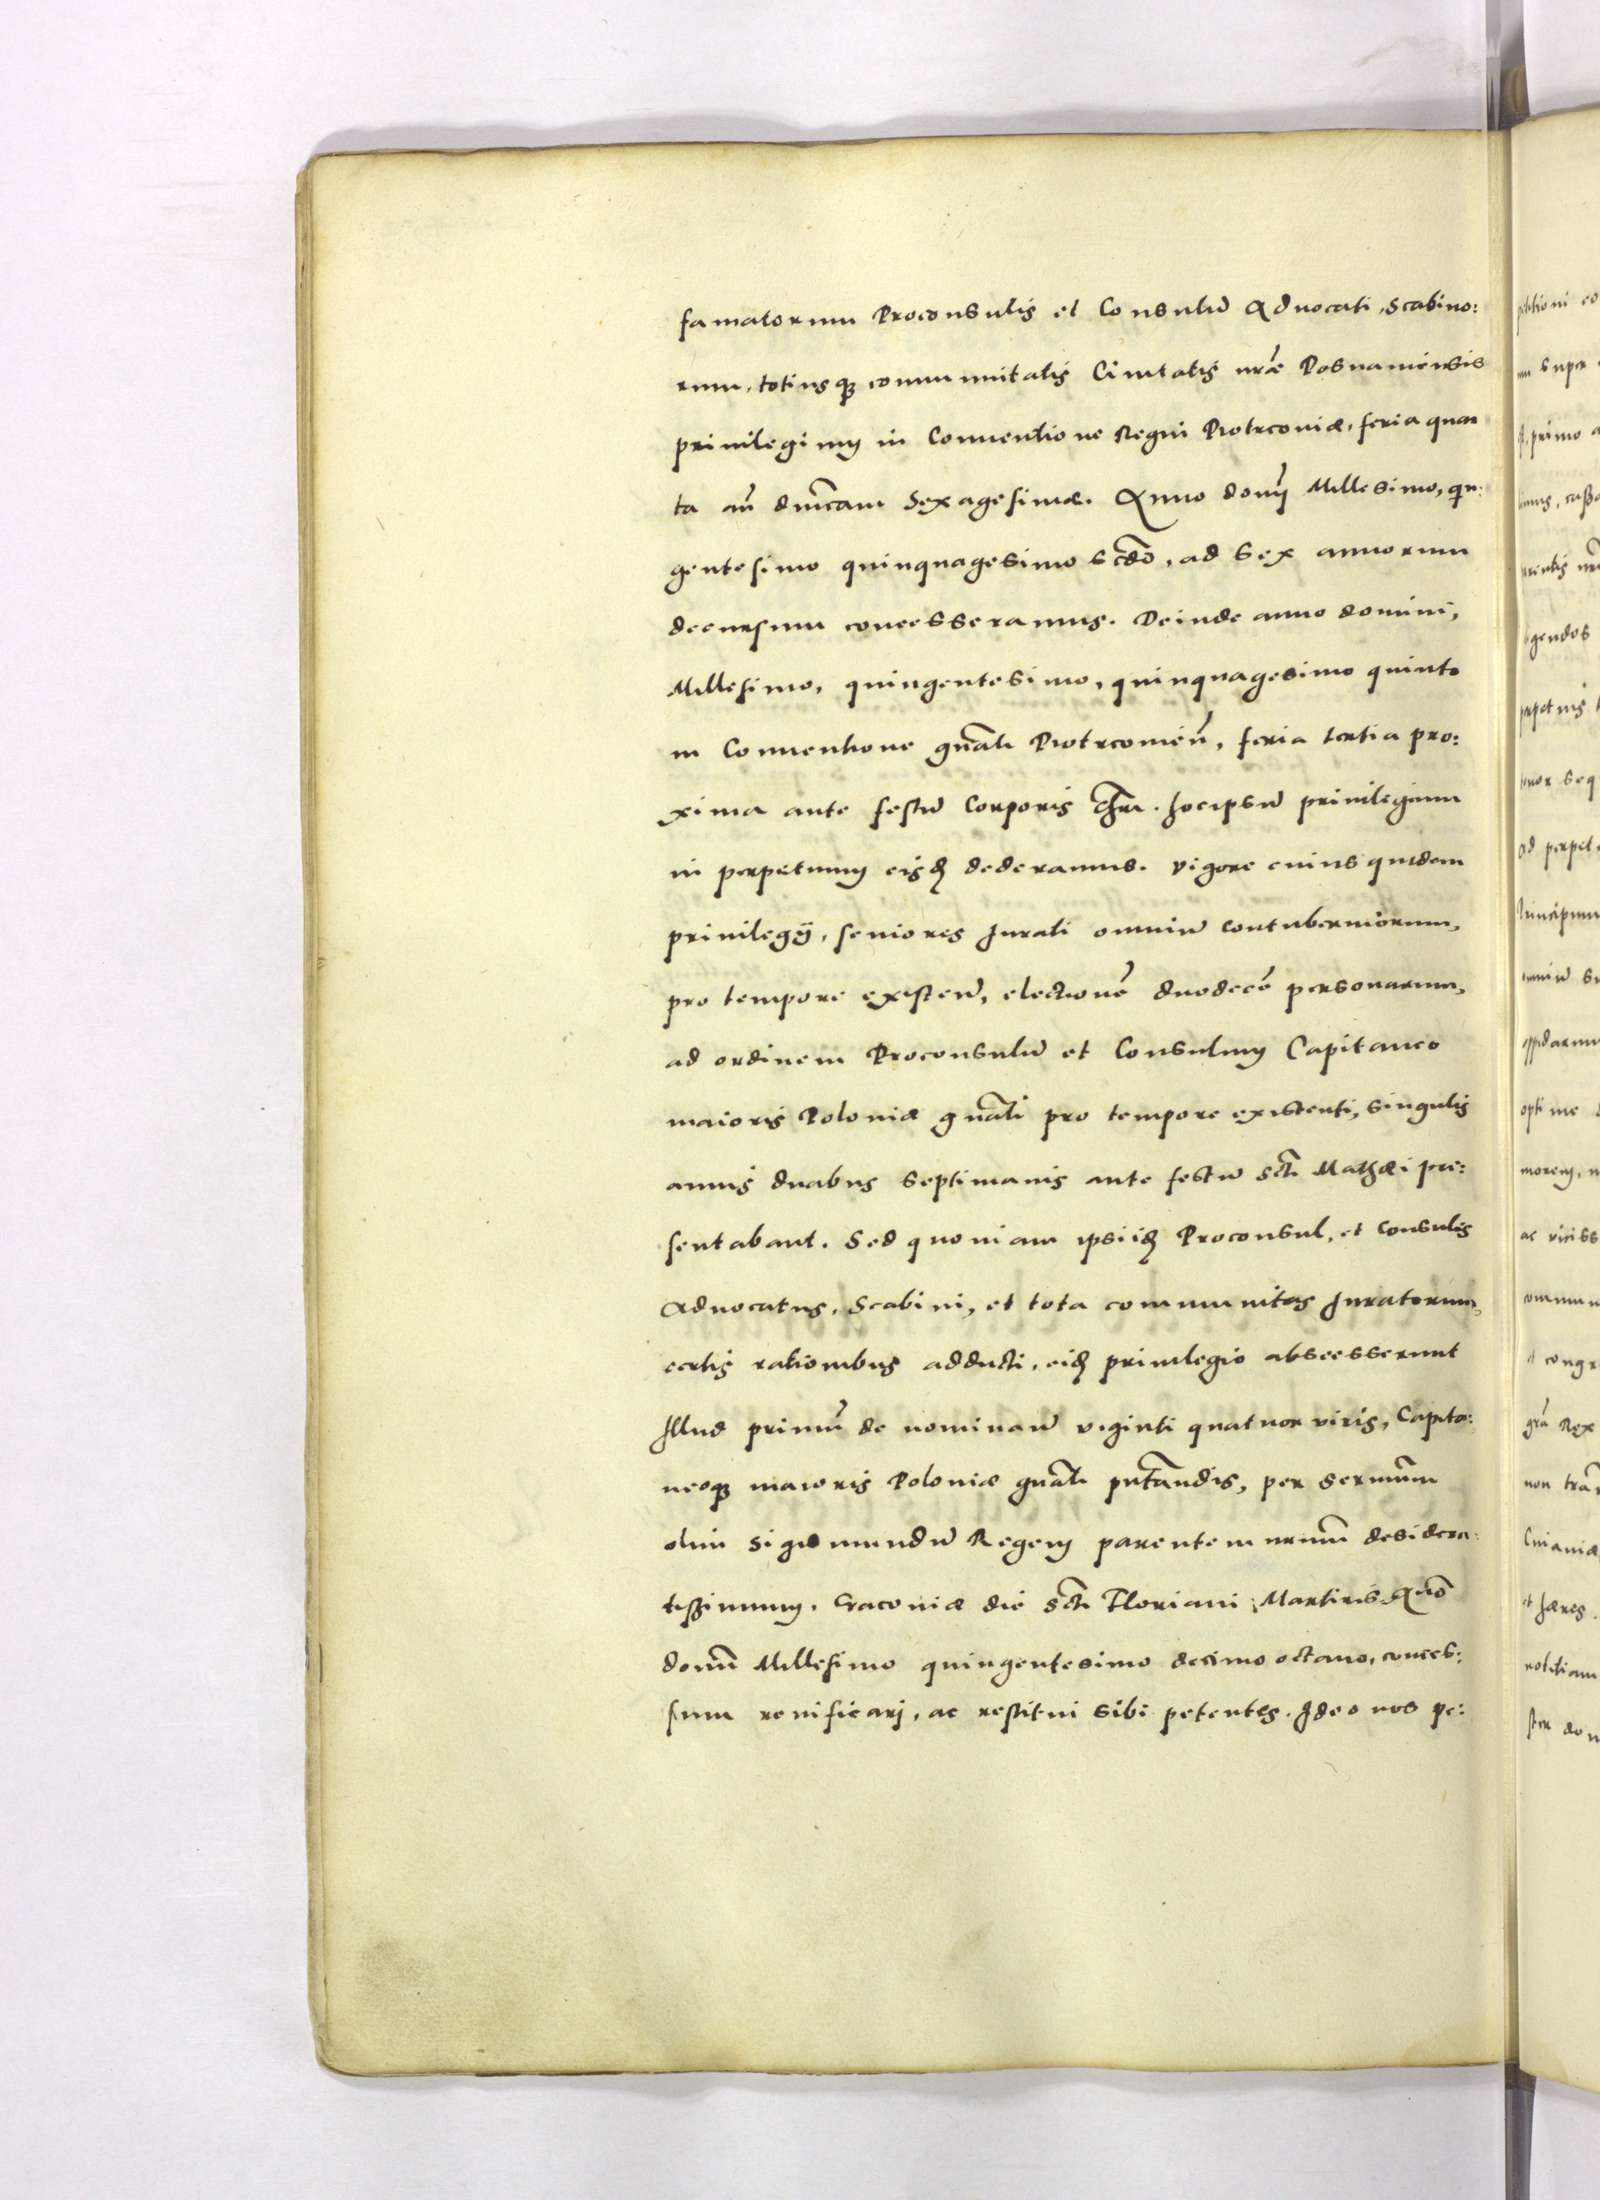 famatorum Proconsulis et Consulū Aduocati, Scabino:
rum, totiusq; communitatis Ciuitatis nr̃æ Posnaniensis
priuilegium in Conuentione Regni Piotrcouiæ, feria quar
ta añ dñicam Sexagesimæ. Anno domĩ Millesimo, quī:
gentesimo quinquagesimo scđo, ad sex annorum
decursum concesseramus. Deinde anno domini,
Millesimo, quingentesimo, quinquagesimo quinto
in Conuentione gñali Piotrcouieñ, feria tertia pro:
xima ante festū Corporis Chri. hocipsū priuilegium
in perpetuum eisđ dederamus. Vigore cuius quidem
priuilegÿ, seniores Jurati omniū contuberniorum,
pro tempore existeñ, electionẽ duodecẽ personarum,
ad ordinem Proconsulū et Consulum Capitaneo
maioris Poloniæ gñali pro tempore existenti, singulis
annis duabus septimanis ante festū scti Mathæi præ:
sentabant. Sed quoniam ipsi iđ Proconsul, et Consules
Aduocatus, Scabini, et tota communitas Juratorum,
certis rationibus adducti, eiđ priuilegio abscesserunt
Illud primũ de nominañ viginti quatuor viris, Capita:
neoq; maioris Poloniæ gñali pñtandis, per sermũm
olim Sigismundū Regem parentem nrũm desidera:
tissimum, Cracouiæ die scti Floriani Martiris Añō
domĩ Millesimo quingentesimo decimo octauo, conces:
sum reuificari, ac restitui sibi petentes. Ideo nos pe: